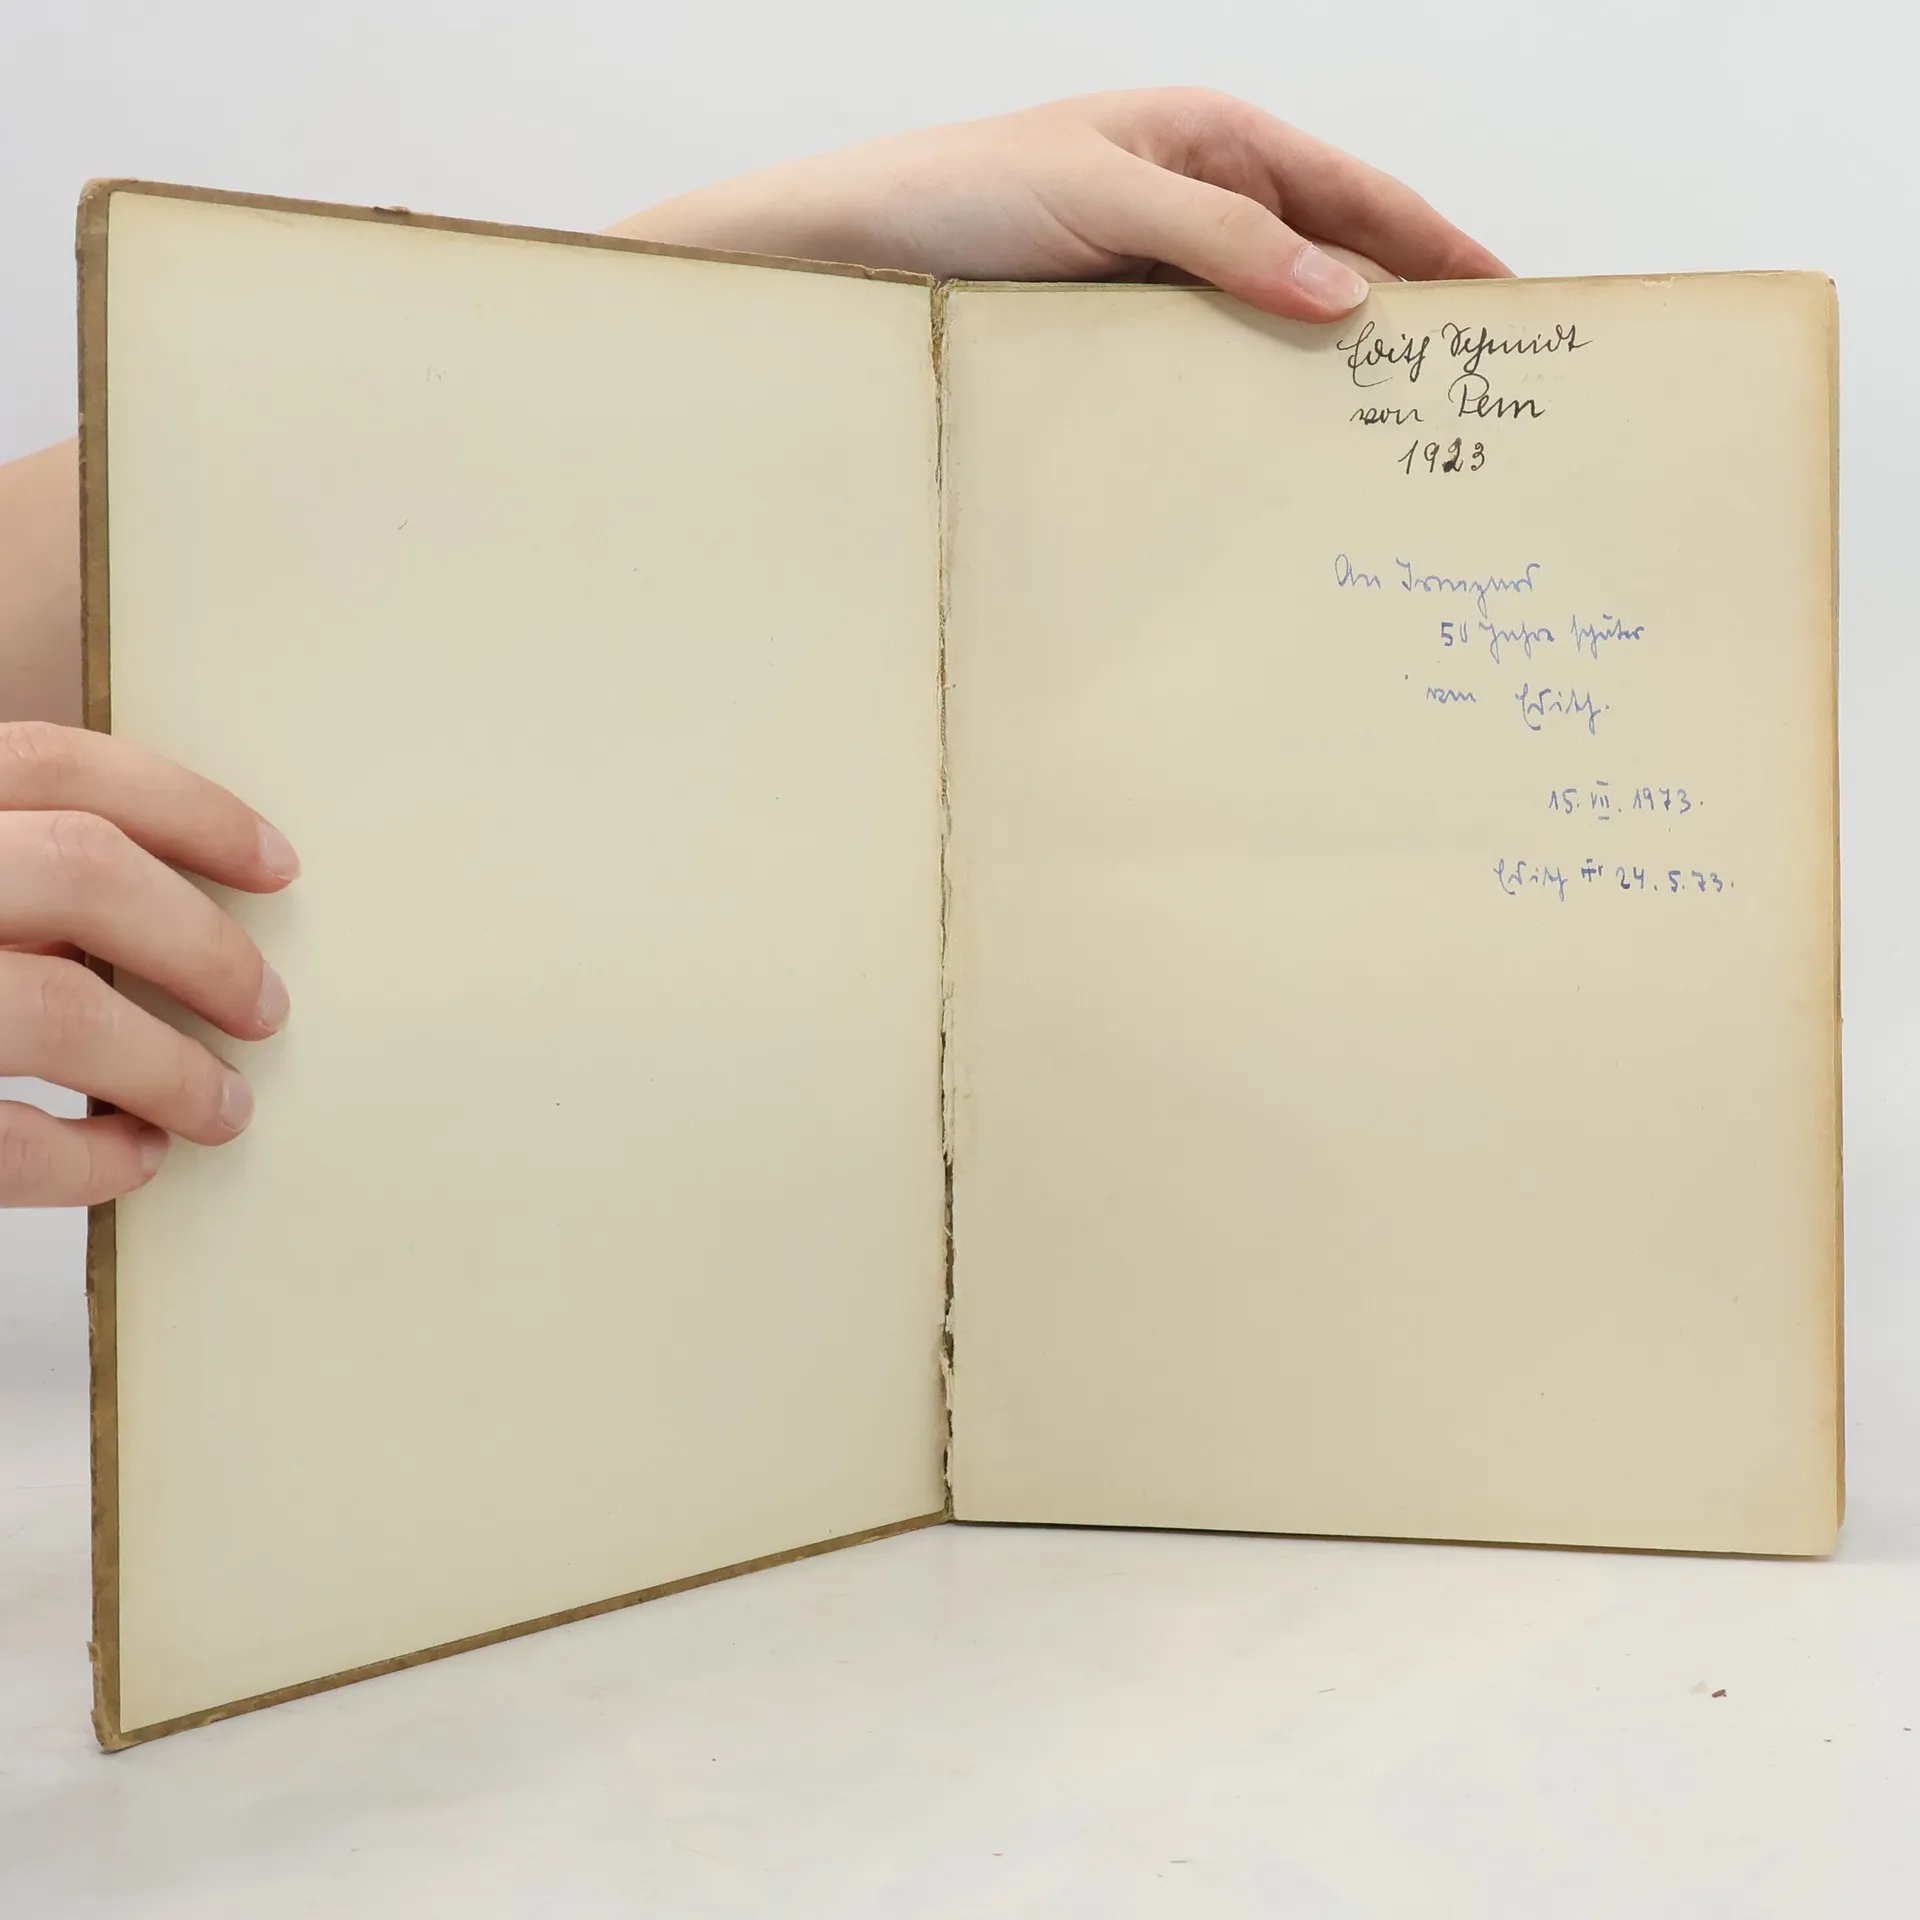 Edith Schmidt
von Pem
1923
An Irmgard
50 Jahre später
von Edith.
15. VII. 1973.
Edith 24.5.73.